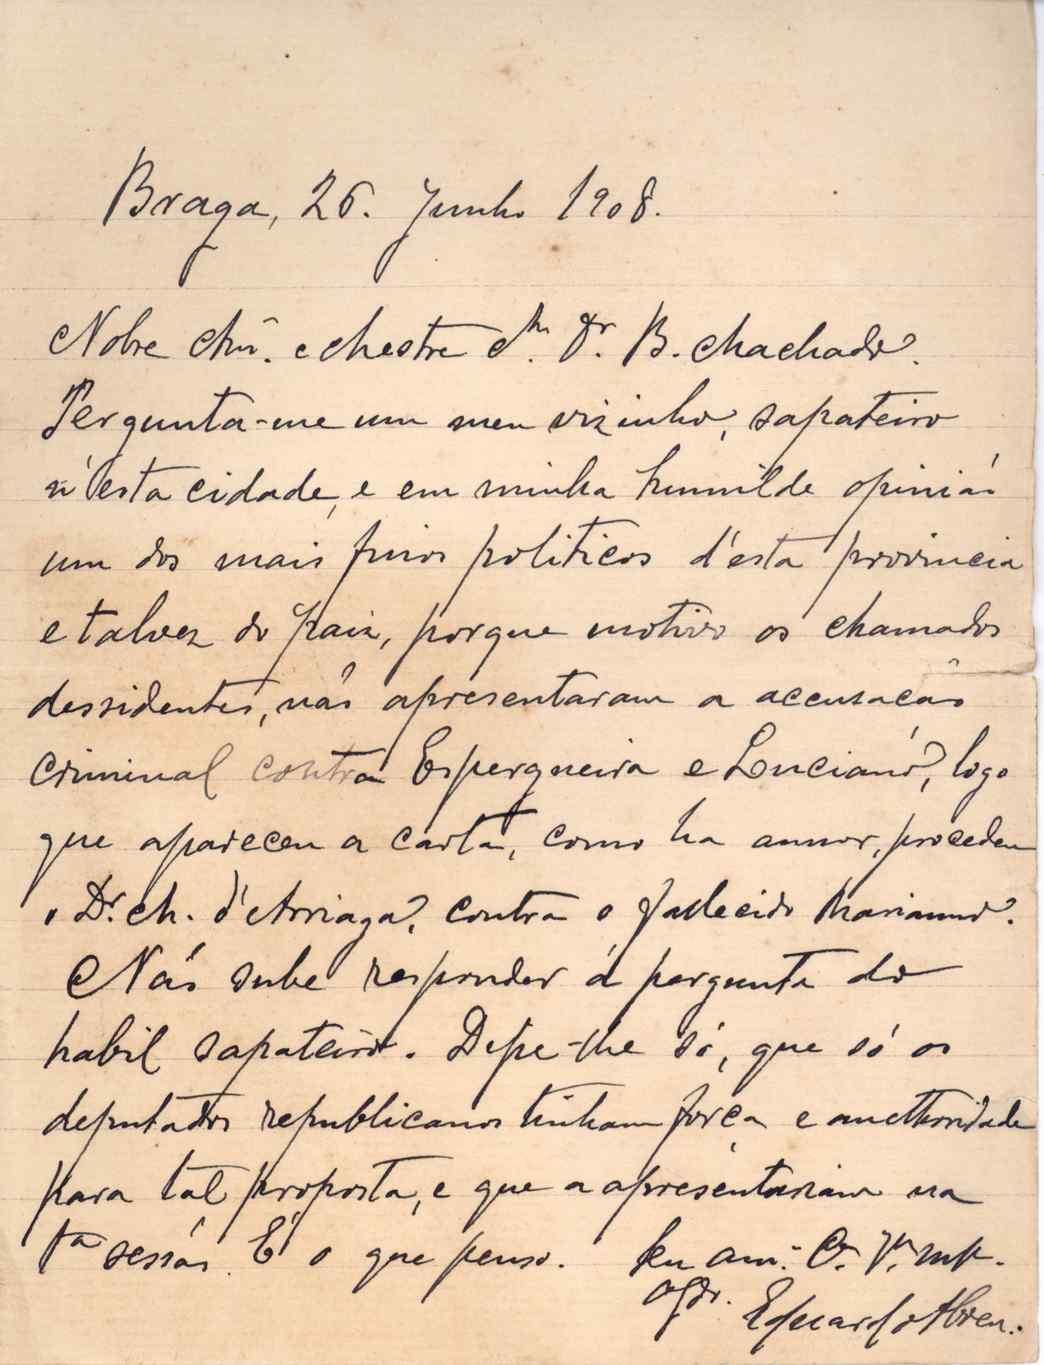 Braga, 26. Junho 1908.
Nobre Am. e Mestre Dr. B. Machado.
Pergunta-me um meu vizinho, sapateiro
n'esta cidade, e em minha humilde opinião
um dos mais finos politicos d'esta provincia
e talvez do paiz, porque motivo os chamados
dessidentes, não apresentaram a accusacão
criminal contra Espergueira e Luciano, logo
que apareceu a carta, como ha annos, procedeu
o Dr. M. d'Arriaga, contra o fallecido Marianno.
Não sube responder á pergunta do
habil sapateiro. Disse-lhe só, que só os
deputados republicanos tinham força e aucthoridade
para tal proposta, e que a apresentariam na
1ª sessão. É o que penso. Seu am.
Eduardo Abreu.